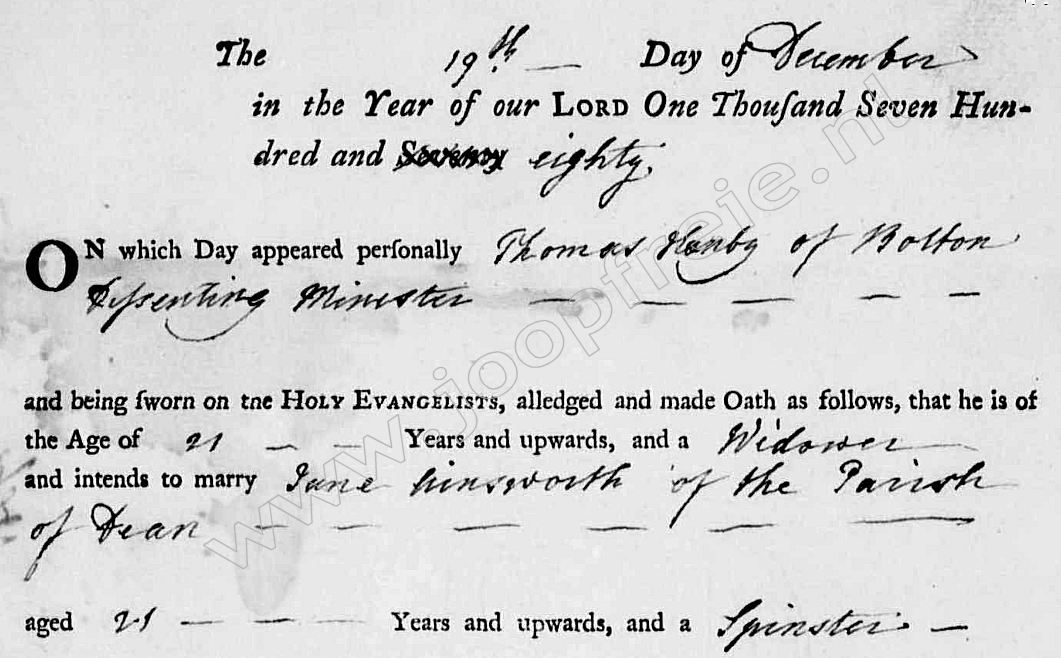 The 19th — Day of December
in the Year of our LORD One Thouſand Seven Hun-
dred and Seventy eighty,
ON which Day appeared perſonally Thomas Hanby of Bolton
Diſsenting Minister — — — — —
and being ſworn on tne HOLY EVANGELISTS, alledged and made Oath as follows, that he is of
the Age of 21 — — Years and upwards, and a Widower —
and intends to marry Jane Ainsworth of the Parish
of Dean — — — — — —
aged 21 — — — Years and upwards, and a Spinster —
www.joopfreie.nl